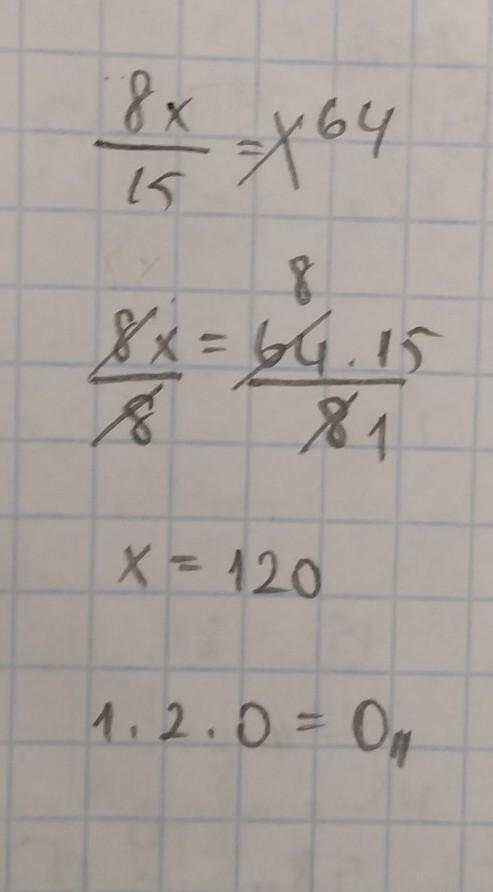 8x/15 = 64
8x/8 = 64.15/8 8 1
x = 120
1.2.0 = 0,,